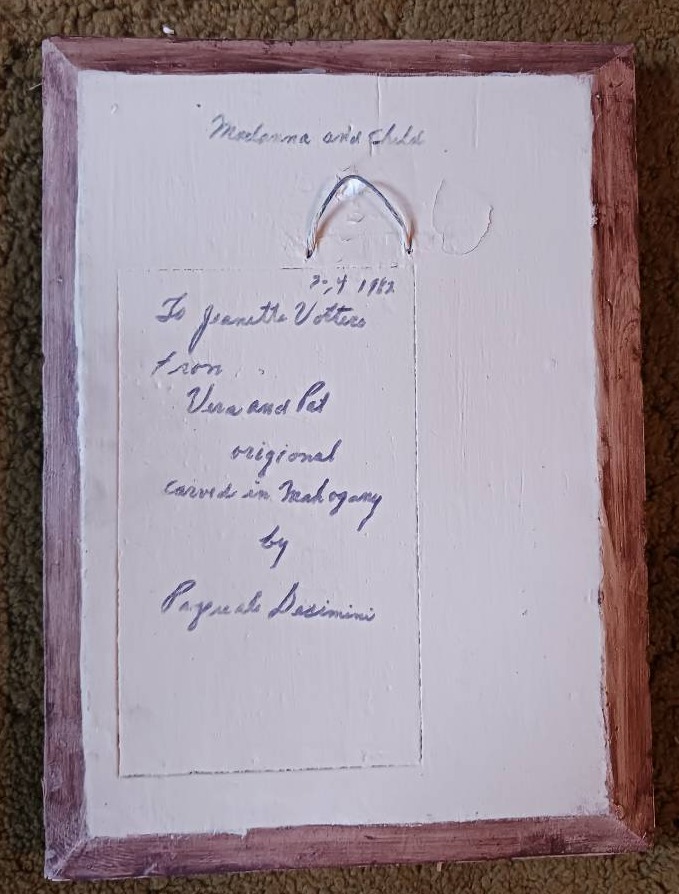 Madonna and Child
1982
To Jeanette Votters
From
Vera and Pat
origional
carved in Mahogany
by
Pasquale Decimini